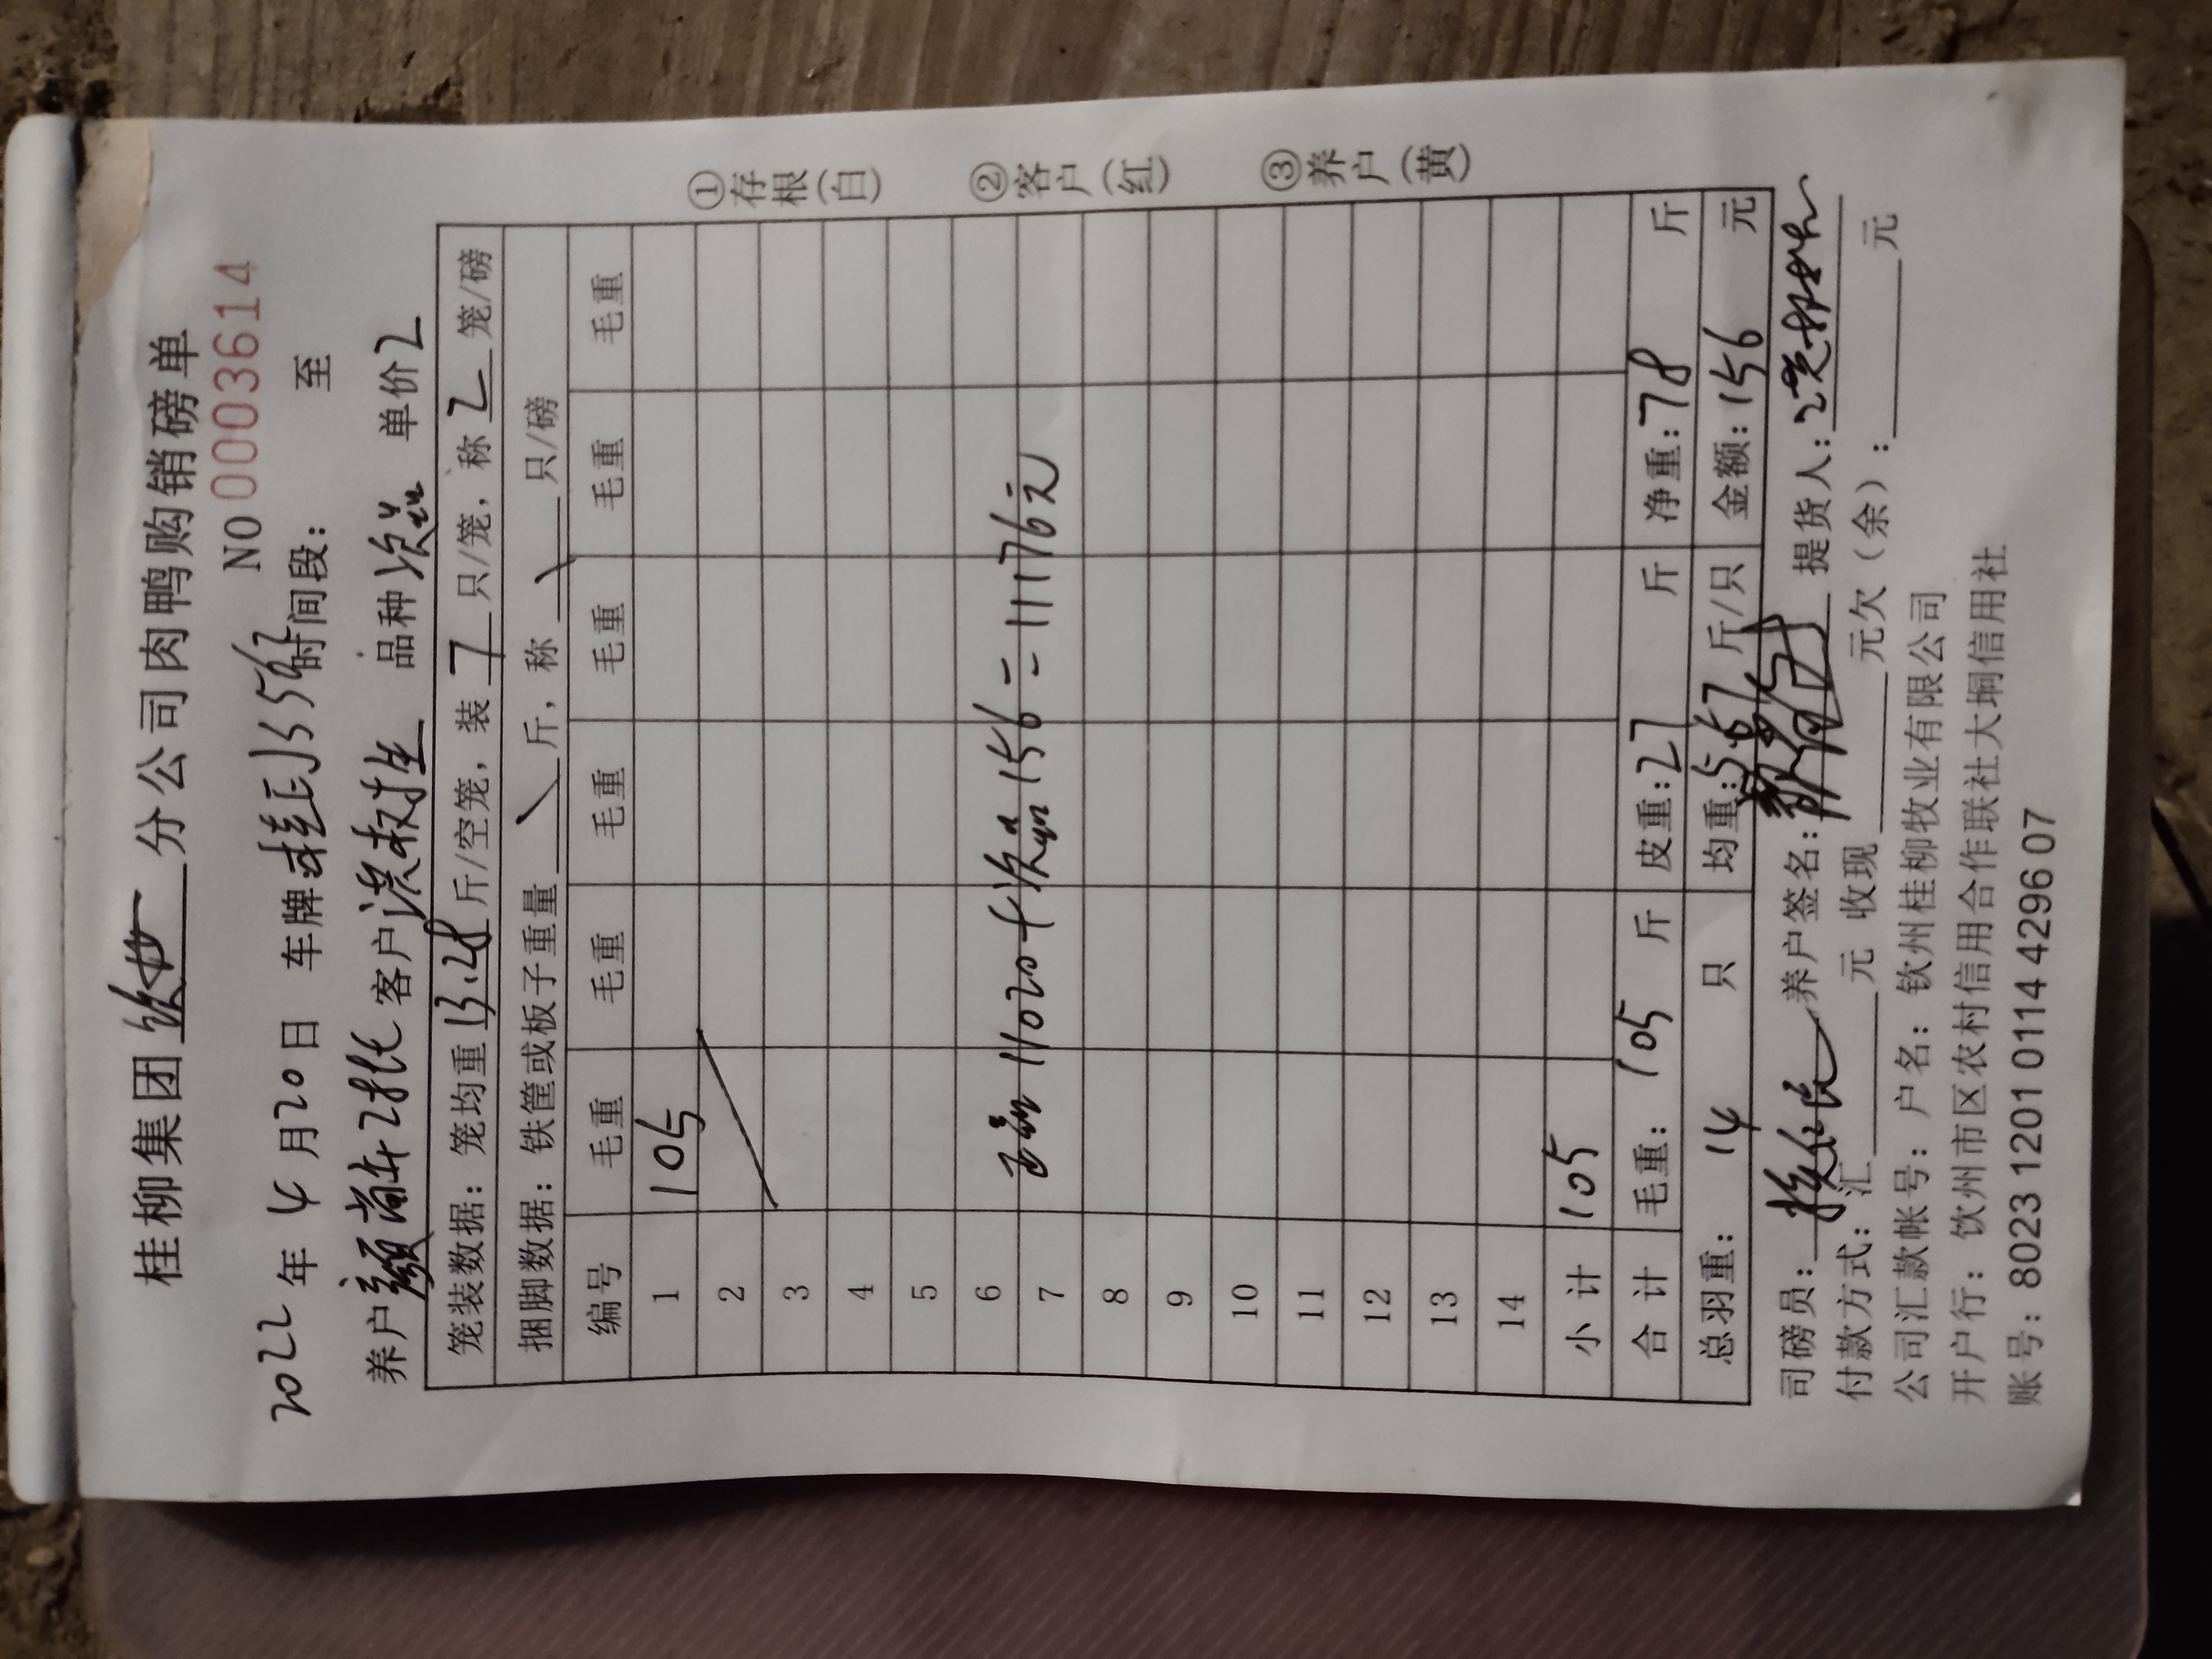 桂柳集团 钦州 分公司肉鸭购销磅单
NO 0003614
2022 年 4 月 20 日 车牌 时间段： 至
养户 客户 品种 次品 单价 2
笼装数据：笼均重 13.28 斤/空笼，装 7 只/笼，称 2 笼/磅
捆脚数据：铁筐或板子重量 斤，称 只/磅
编号 毛重 毛重 毛重 毛重 毛重 毛重
1 105
2
3
4
5
6
7 11020 + 次品 156 = 11176元
8
9
10
11
12
13
14
小计 105
合计 毛重：105 斤 皮重：27 斤 净重：78 斤
总羽重：14 只 均重：5.57 斤/只 金额：156 元
司磅员： 养户签名： 提货人：
付款方式：汇 元 收现 元欠（余）： 元
公司汇款帐号：户名：钦州桂柳牧业有限公司
开户行：钦州市区农村信用合作联社大垌信用社
账号：8023 1201 0114 4296 07
①存根(白) ②客户(红) ③养户(黄)